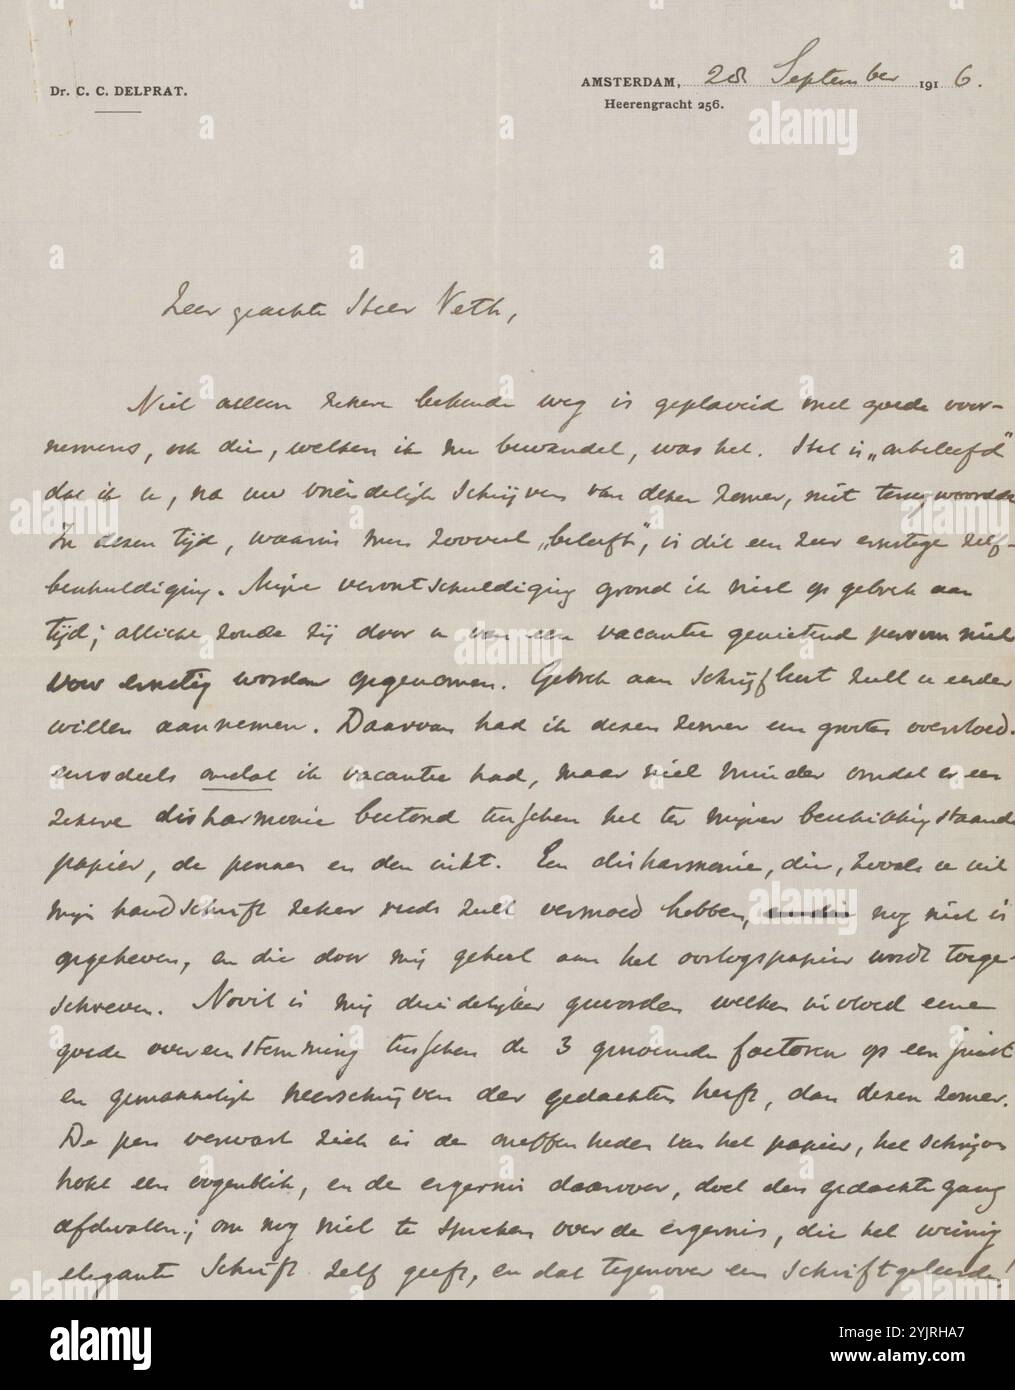 Dr. C. C. DELPRAT.
AMSTERDAM, 28 September 1916.
Heerengracht 256.
Zeer geachte Heer Veth,
Niet alleen zekere bekende weg is geplaveid met goede voor-
nemens, ook die, welken ik nu bewandel, was het. Het is „onbeleefd"
dat ik u, na uw vriendelijk schrijven van dezen zomer, niet terug
In dezen tijd, waarin men zooveel „beleeft", is dit een zeer ernstige zelf-
beschuldiging. Mijne verontschuldiging grond ik niet op gebrek aan
tijd; allicht zoude zij door u van een vacantie genietend persoon niet
voor ernstig worden opgenomen. Gebrek aan schrijflust zult u eerder
willen aannemen. Daarvan had ik dezen zomer een grooten overvloed.
eensdeels omdat ik vacantie had, maar niet minder omdat er een
zekere disharmonie bestond tusschen het ter mijner beschikking staande
papier, de pennen en den inkt. Een disharmonie, die, zooals u uit
mijn handschrift zeker reeds zult vermoed hebben, nog niet is
opgeheven, en die door mij geheel aan het oorlogspapier wordt toege-
schreven. Nooit is mij duidelijker geworden welken invloed eene
goede overeenstemming tusschen de 3 genoemde factoren op een juist
en gemakkelijk neerschrijven der gedachten heeft, dan dezen zomer.
De pen verwart zich in de oneffenheden van het papier, het schrijven
hokt een oogenblik, en de ergernis daarover, doet den gedachtegang
afdwalen; om nog niet te spreken over de ergernis, die het weinig
elegante schrift zelf geeft, en dat tegenover een schriftgeleerde!
alamy
a
alamy
Image ID: 2YJRHA7
www.alamy.com